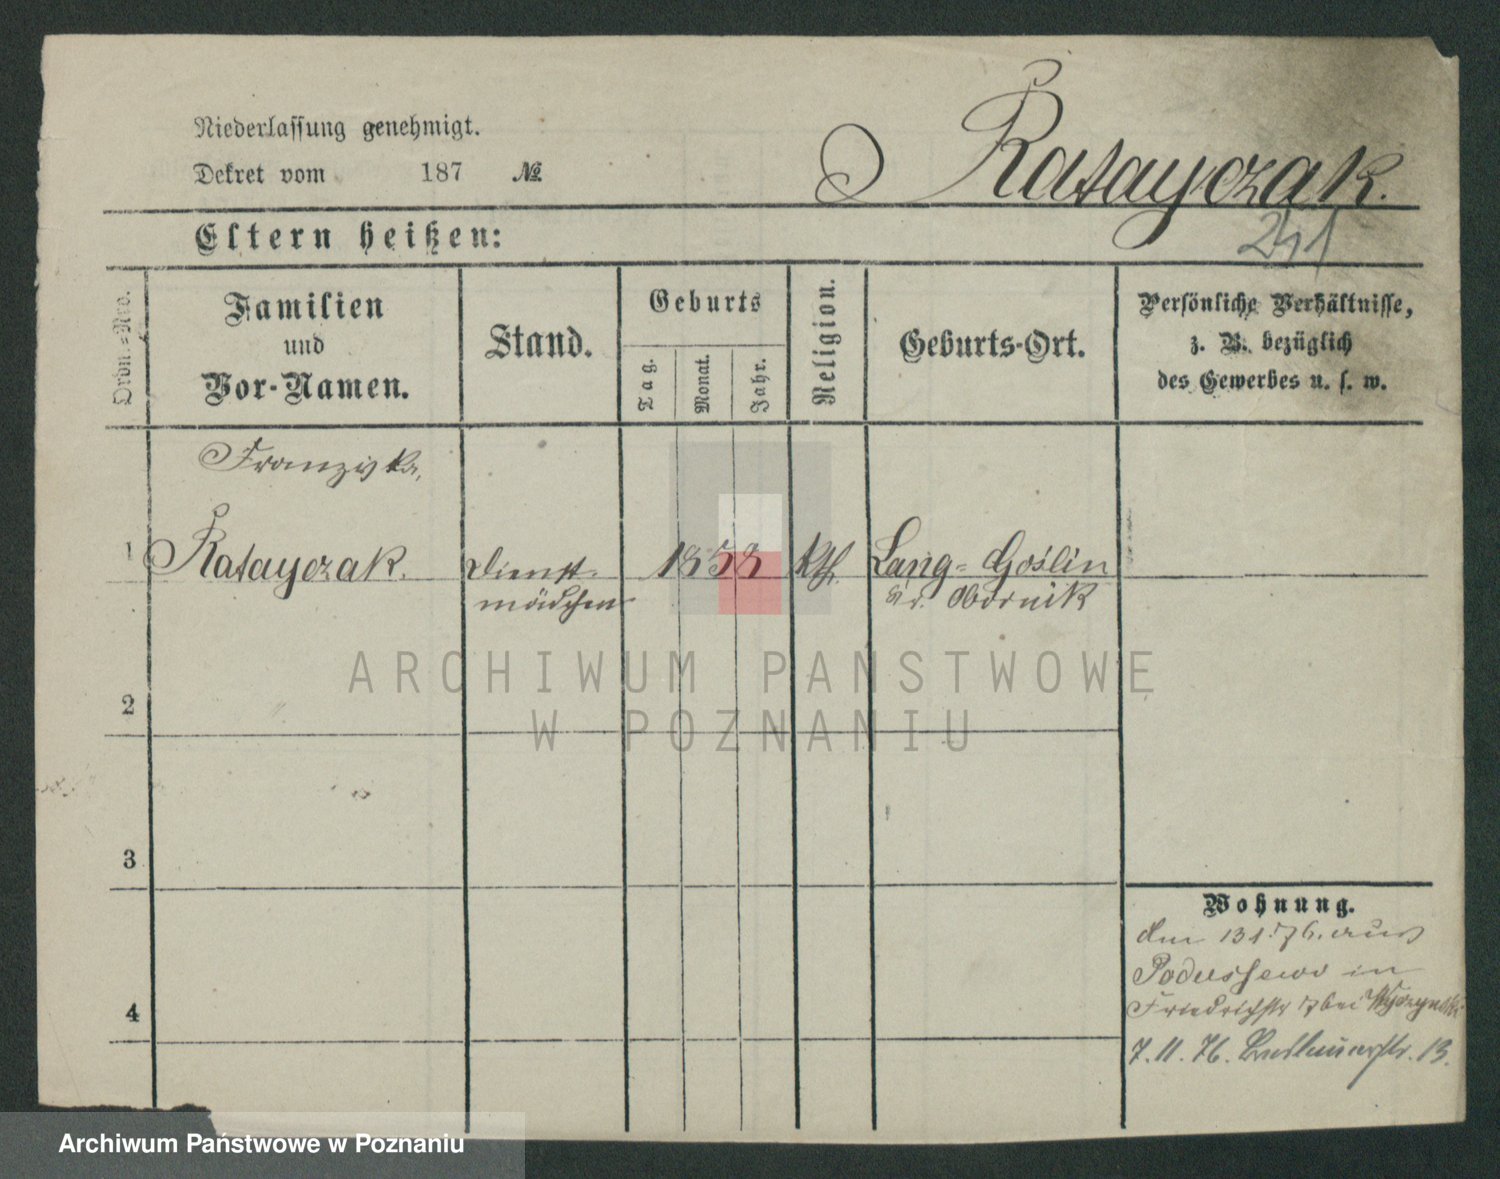 Niederlassung genehmigt.
Dekret vom 187 №
Ratayczak.
241
Eltern heißen:
Ordn.-Nro.
Familien
und
Vor-Namen.
Stand.
Geburts
Tag.
Monat.
Jahr.
Religion.
Geburts-Ort.
Persönliche Verhältnisse,
z. B. bezüglich
des Gewerbes u. s. w.
Franziska,
1 Ratayczak. Dienst- 1858 kth Lang-Goślin
mädchen Kr. Obornik
ARCHIWUM PAŃSTWOWE
W POZNANIU
2
3
4
Wohnung.
den 13 1. 76. aus
Podussewo in
Friedrichstr 7 bei
7. 11. 76. 13.
Archiwum Państwowe w Poznaniu